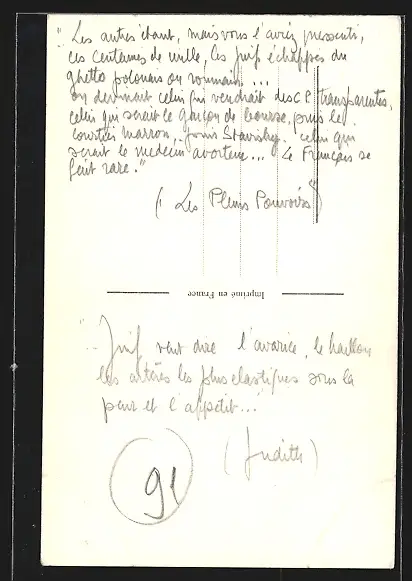 "Les autres étant, mais vous l'aviez pressenti,
ces centaines de mille, ces juifs échappés du
ghetto polonais ou roumain....
on devinait celui qui vendrait des C.P. transparentes,
celui qui serait le garçon de bourse, puis le
courtier marron, puis Stavisky. celui qui
serait le medecin avorteur... Le Français se
fait rare."
(Les Pleins Pouvoirs)
Imprimé en France
Juif veut dire l'avarice, le haillon
les artères les plus élastiques sous la
peur et l'appétit..."
(Judith)
91